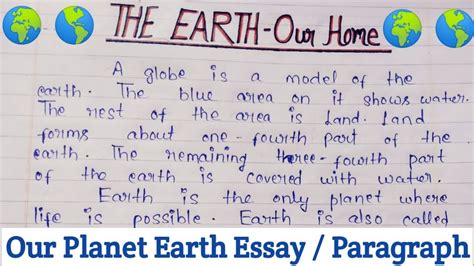 THE EARTH-Our Home
A globe is a model of the
earth. The blue area on it shows water.
The rest of the area is Land. Land
forms about one-fourth part of the
earth. The remaining three-fourth part
of the earth is covered with water.
Earth is the only planet where
life is possible. Earth is also called
Our Planet Earth Essay / Paragraph